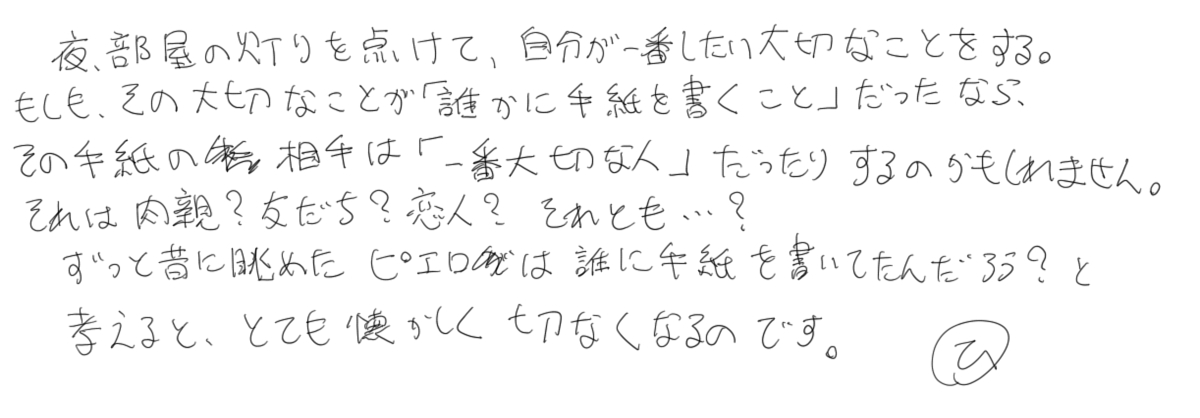 夜、部屋の灯りを点けて、自分が一番したい大切なことをする。
もしも、その大切なことが「誰かに手紙を書くこと」だったなら、
その手紙の相手は「一番大切な人」だったりするのかもしれません。
それは肉親？友だち？恋人？それとも…？
ずっと昔に眺めたピエロは誰に手紙を書いてたんだろう？と
考えると、とても懐かしく切なくなるのです。
ひ